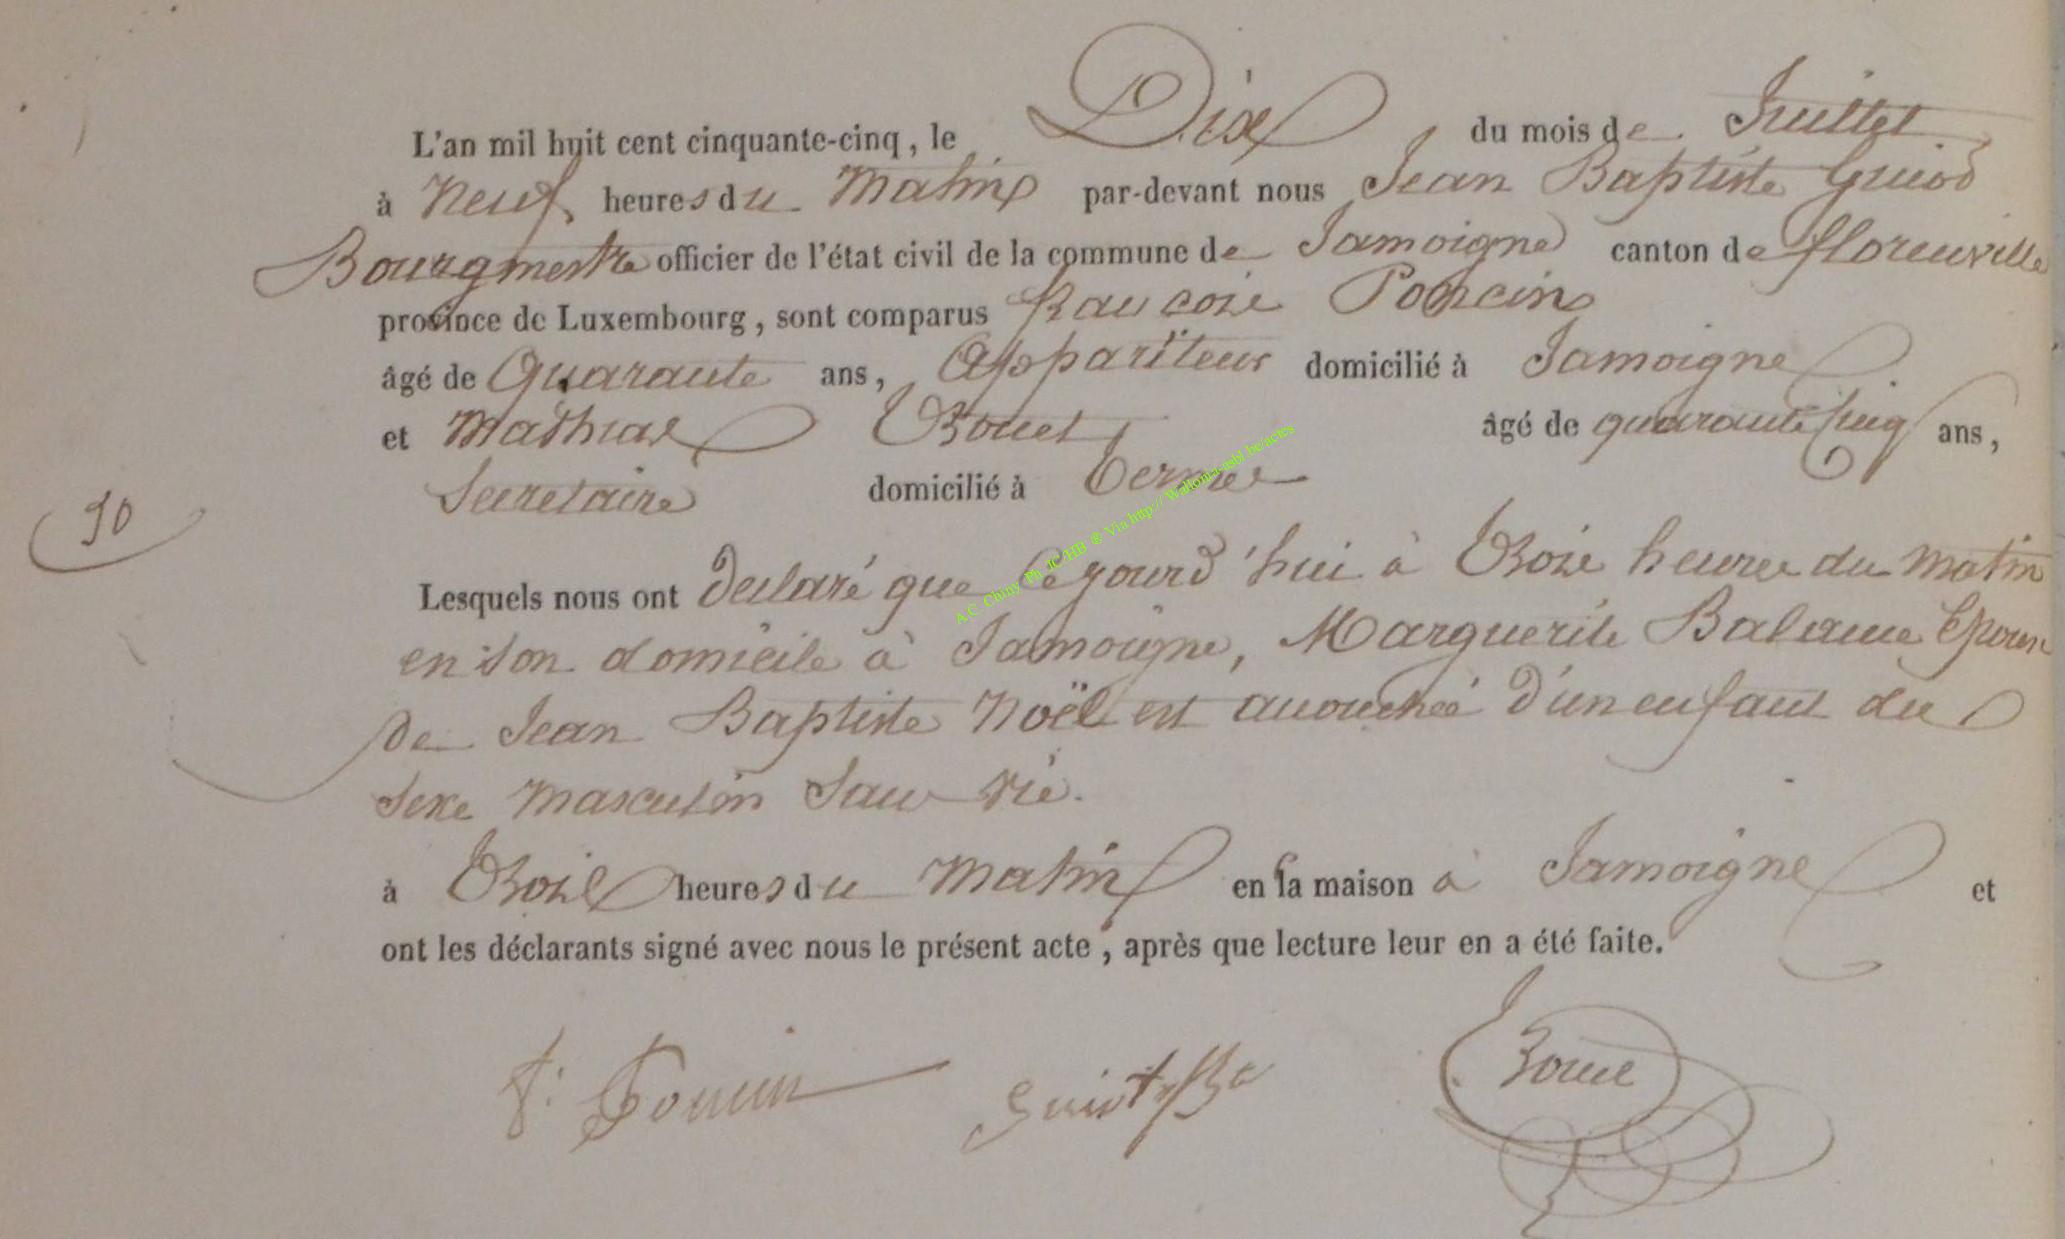 L'an mil huit cent cinquante-cinq, le Dix du mois de Juillet
à Neuf heures du Matin par-devant nous Jean Baptiste Guiot
Bourgmestre officier de l'état civil de la commune de Jamoigne canton de florenville
province de Luxembourg, sont comparus francois Poncin
âgé de Quarante ans, Appariteur domicilié à Jamoigne
et Mathias âgé de quarante cinq ans,
Secretaire domicilié à Termes
10
Lesquels nous ont declaré que Cejourd'hui à Trois heures du Matin
en son domicile à Jamoigne, Marguerite Balaine Epouse
De Jean Baptiste Noël est accouchée d'un enfant du
Sexe Masculin Sans vie.
à Trois heures du Matin en sa maison à Jamoigne et
ont les déclarants signé avec nous le présent acte, après que lecture leur en a été faite.
f: Poncin Guiot
A C Chiny Ph JC/HB ® Via http://Wallonia-asbl.be/actes